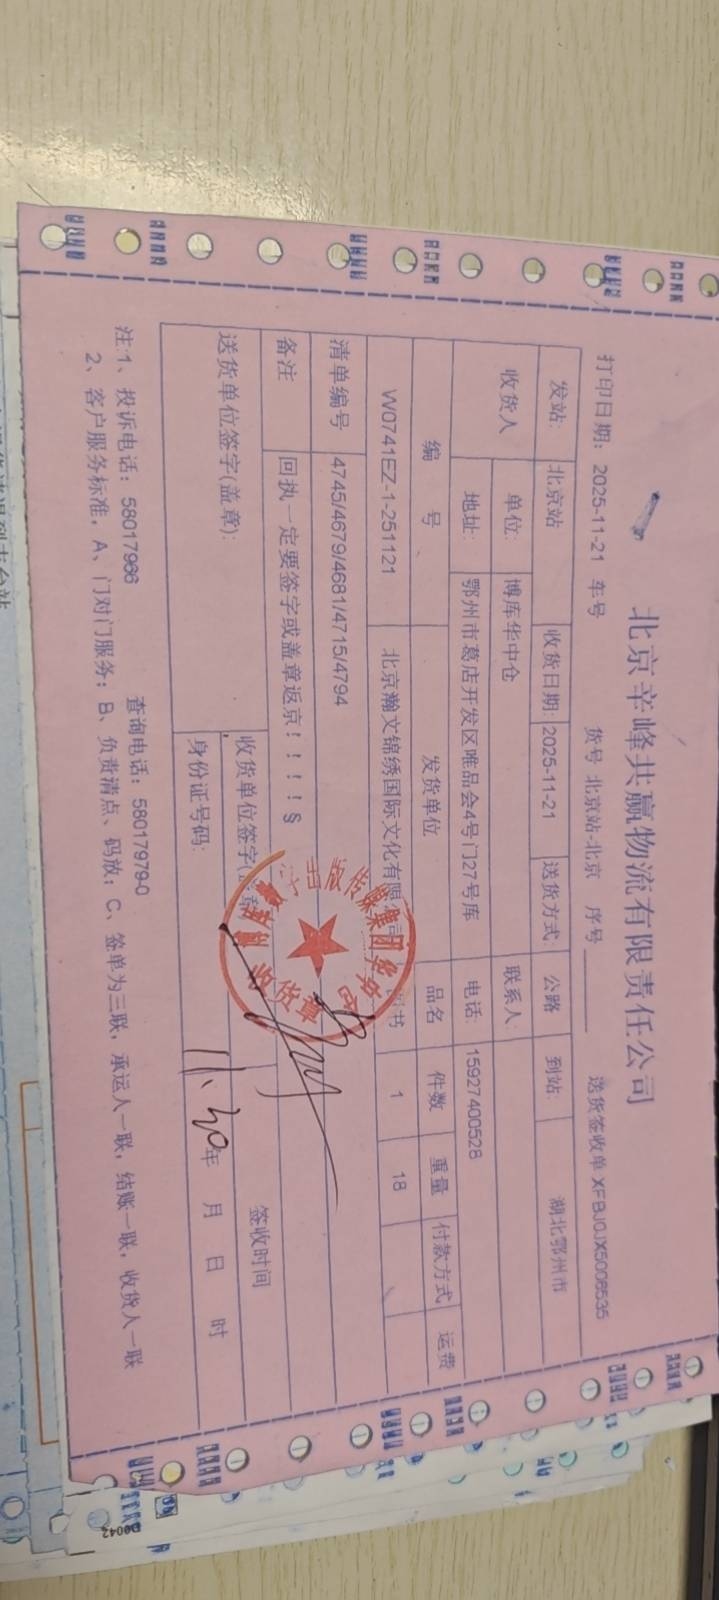 北京辛峰共赢物流有限责任公司
打印日期: 2025-11-21 车号 货号 北京站-北京 序号 送货签收单 XFBJOJX5006535
发站: 北京站 收货日期: 2025-11-21 送货方式: 公路 到站: 湖北鄂州市
收货人 单位: 博库华中仓 联系人
地址: 鄂州市葛店开发区唯品会4号门27号库 电话: 15927400528
编 号 发货单位 品名 件数 重量 付款方式 运费
W0741EZ-1-251121 北京瀚文锦绣国际文化有限 书 1 18
清单编号 4745/4679/4681/4715/4794
备注 回执一定要签字或盖章返京!!!!§
送货单位签字(盖章): 收货单位签字( 章 签收时间
身份证号码: 11.30 年 月 日 时
出版传媒集团
收货章
注:1、投诉电话: 58017966 查询电话: 58017979-0
2、客户服务标准, A、门对门服务; B、负责清点、码放; C、签单为三联, 承运人一联, 结账一联, 收货人一联